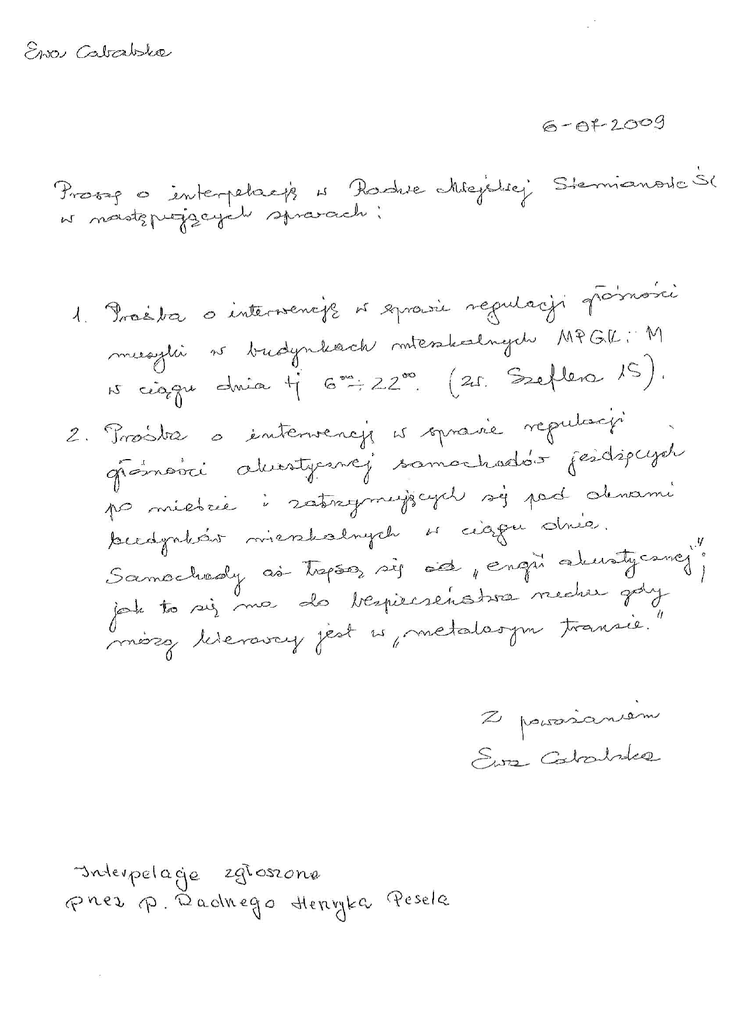 Ewa Cabalska
6-07-2009
Proszę o interpelację w Radzie Miejskiej Siemianowic Śl
w następujących sprawach:
1. Prośba o interwencję w sprawie regulacji głośności
muzyki w budynkach mieszkalnych MPGK i M
w ciągu dnia tj 6⁰⁰÷22⁰⁰. (zw. Szeflera 15).
2. Prośba o interwencję w sprawie regulacji
głośności akustycznej samochodów jeżdżących
po mieście i zatrzymujących się pod oknami
budynków mieszkalnych w ciągu dnia.
Samochody aż trzęsą się od „engii akustycznej";
jak to się ma do bezpieczeństwa ruchu gdy
mózg kierowcy jest w „metalowym transie."
Z poważaniem
Ewa Cabalska
Interpelacje zgłoszone
przez p. Radnego Henryka Pesela